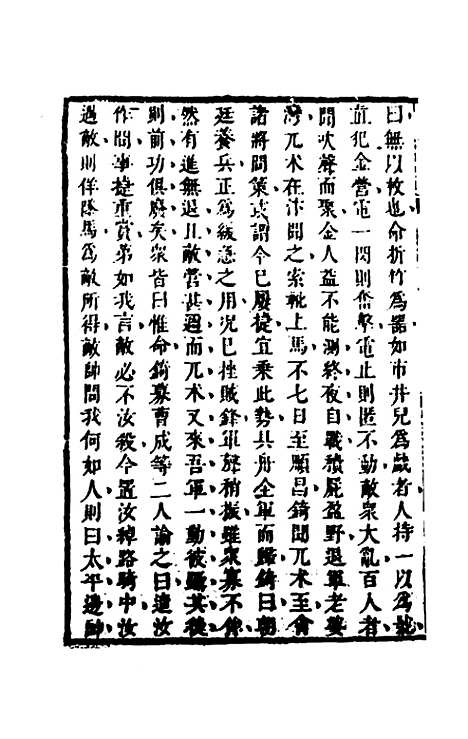 曰無以枚也命折竹為嘂如市井兒為戲者人持一以為號
直犯金營電一閃則奮擊電止則匿不動敵衆大亂百人者
聞吹聲而聚金人益不能測終夜自戰積屍盈野退軍老婆
灣兀术在汴聞之索靴上馬不七日至順昌錡聞兀术至會
諸將問策或謂今已屢捷宜乘此勢具舟全軍而歸錡曰朝
廷養兵正為緩急之用况已挫賊鋒軍聲稍振雖衆寡不侔
然有進無退且敵營甚邇而兀术又來吾軍一動彼躡其後
則前功俱廢矣衆皆曰惟命錡募曹成等二人諭之曰遣汝
作間事捷重賞第如我言敵必不汝殺今置汝綽路騎中汝
遇敵則佯墜馬為敵所得敵帥問我何如人則曰太平邊帥